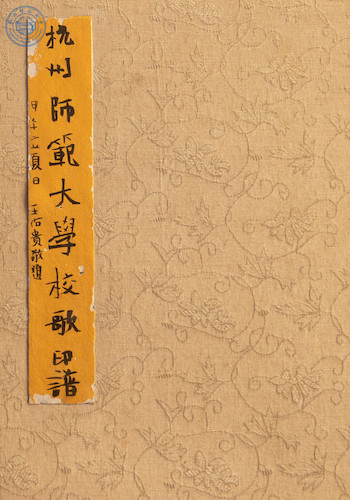 杭州師範大學校歌印譜
甲午立夏日 王石貴敬題